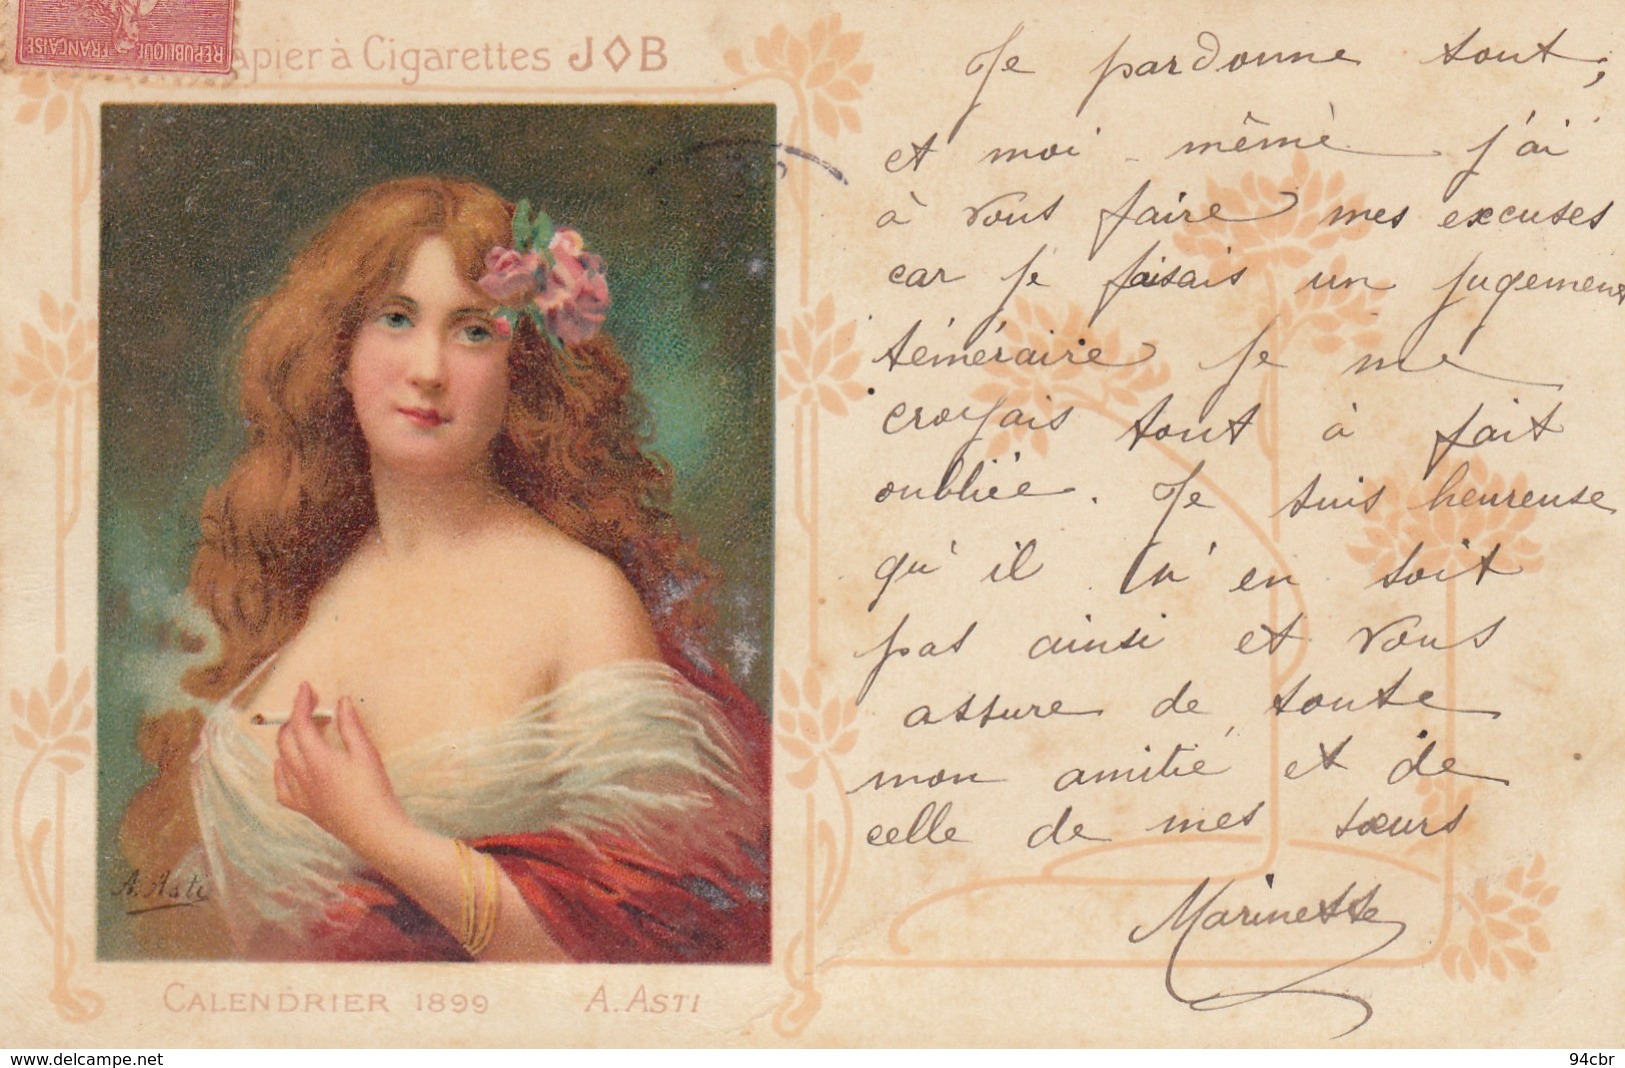 RÉPUBLIQUE FRANÇAISE
apier à Cigarettes JOB
A. Asti
CALENDRIER 1899 A. ASTI
Je pardonne tout ;
et moi-même j'ai
à vous faire mes excuses
car je faisais un jugement
téméraire je me
croyais tout à fait
oubliée. Je suis heureuse
qu'il n'en soit
pas ainsi et vous
assure de toute
mon amitié et de
celle de mes sœurs
Marinette
www.delcampe.net
94cbr